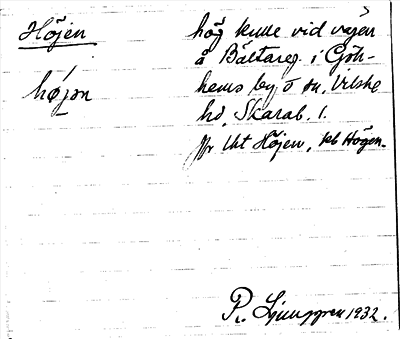 Höjen
hög kulle vid vägen
å Bältareg. i Göt-
hø̀jən
hems by o sn, Vilske
hd, Skarab. l.
jfr Uht Höjen, kb Högen.
R. Ljunggren 1932.